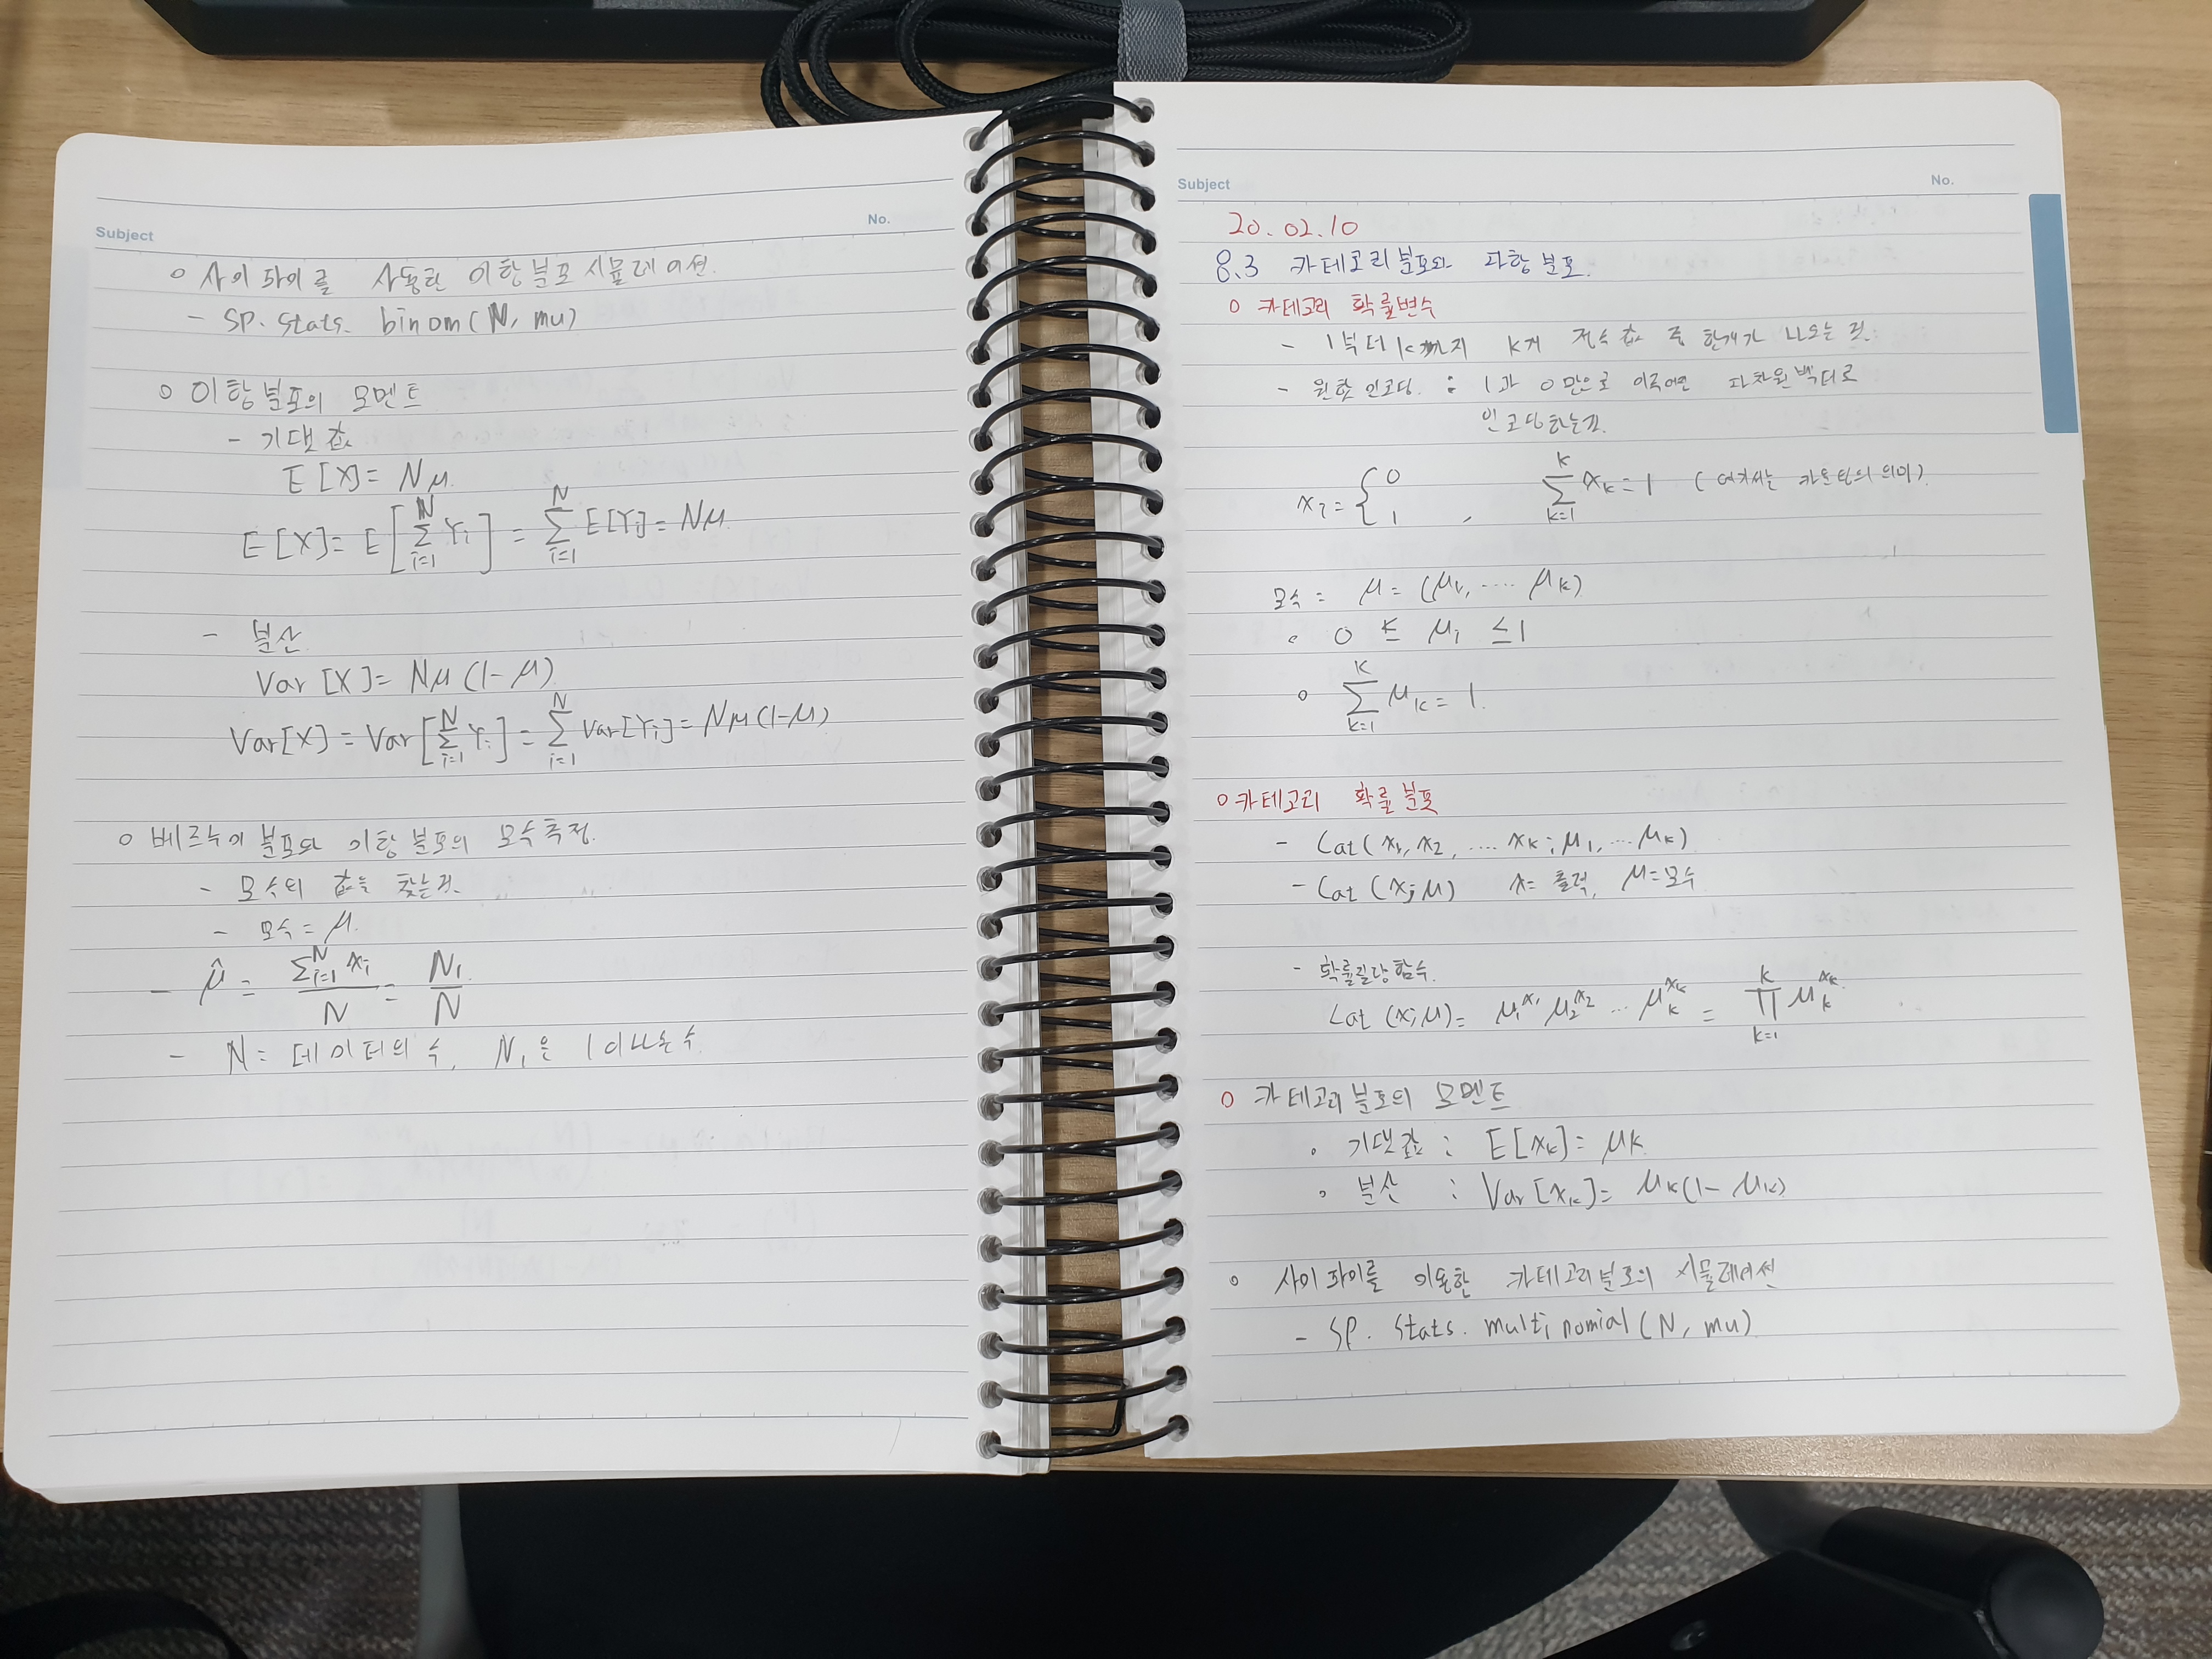 Subject
No.
o 사이파이를 사용한 이항분포시뮬레이션.
- SP. Stats. binom(N, mu)
o 이항분포의 모멘트
- 기댓값
E[X] = Nμ
E[X] = E[∑_{i=1}^{N} Y_i] = ∑_{i=1}^{N} E[Y_i] = Nμ
- 분산
Var[X] = Nμ(1-μ)
Var[X] = Var[∑_{i=1}^{N} Y_i] = ∑_{i=1}^{N} Var[Y_i] = Nμ(1-μ)
o 베르누이분포와 이항분포의 모수추정.
- 모수의 값을 찾는것.
- 모수 = μ.
- μ̂ = ∑_{i=1}^{N} x_i / N = N_1 / N
- N = 데이터의 수, N_1은 1이 나온수.
Subject
No.
20.02.10
8.3 카테고리분포와 다항분포.
o 카테고리 확률변수
- 1부터 K까지 K개 정수값 중 한개가 나오는 것.
- 원핫인코딩 : 1과 0만으로 이루어진 다차원벡터로
인코딩하는것.
x_i = { 0 1 , ∑_{k=1}^{K} x_k = 1 (여기서는 의미)
모수 = μ = (μ_1, .... μ_K)
o 0 ≤ μ_i ≤ 1
o ∑_{k=1}^{K} μ_k = 1.
o 카테고리 확률분포
- Cat(x_1, x_2, .... x_K ; μ_1, ... μ_K)
- Cat(x;μ) x = 출력, μ = 모수
- 확률질량함수.
Cat(x;μ) = μ_1^{x_1} μ_2^{x_2} ... μ_K^{x_K} = ∏_{k=1}^{K} μ_k^{x_k}
o 카테고리분포의 모멘트
o 기댓값 : E[x_k] = μ_k
o 분산 : Var[x_k] = μ_k(1-μ_k)
o 사이파이를 이용한 카테고리분포의 시뮬레이션
- SP. Stats. multinomial(N, mu)